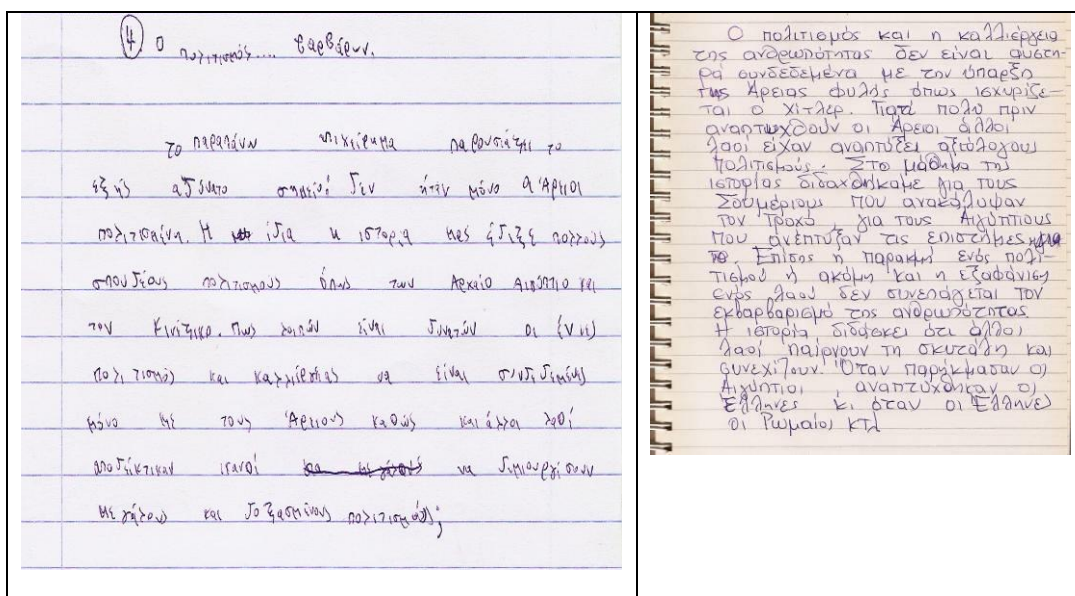 ④ Ο πολιτισμός.... βαρβάρων.
το παραπάνω επιχείρημα παρουσιάζει το
εξής αδύνατο σημείο: Δεν ήταν μόνο οι Άρειοι
πολιτισμένη. Η ίδια η ιστορία μας έδιξε πολλούς
σπουδέους πολιτισμούς όπως των Αρχαίο Αιγύπτιο και
τον Κινέζικο. Πως λοιπών είναι δυνατών οι έννιες
πολιτισμός και καλλιέργιας να είναι συνδεδεμένες
μόνο με τους Άρειους καθώς και άλλοι λαοί
αποδείκτικαν ικανοί να διμιουργίσουν
μεγάλους και δοξασμένους πολιτισμούς;
Ο πολιτισμός και η καλλιέργεια
της ανθρωπότητας δεν είναι αυστη-
ρά συνδεδεμένα με την ύπαρξη
της Άρειας φυλής όπως ισχυρίζε-
ται ο Χίτλερ. Γιατί πολύ πριν
αναπτυχθούν οι Άρειοι άλλοι
λαοί είχαν αναπτύξει αξιόλογους
πολιτισμούς. Στο μάθημα της
ιστορίας διδαχθήκαμε για τους
Σουμέριους που ανακάλυψαν
τον τροχό, για τους Αιγύπτιους
που ανέπτυξαν τις επιστήμες
Επίσης η παρακμή ενός πολι-
τισμού ή ακόμη και η εξαφάνιση
ενός λαού δεν συνεπάγεται τον
εκβαρβαρισμό της ανθρωπότητας
Η ιστορία διδάσκει ότι άλλοι
λαοί παίρνουν τη σκυτάλη και
συνεχίζουν. Όταν παρήκμασαν οι
Αιγύπτιοι, αναπτύχθηκαν οι
Έλληνες κι όταν οι Έλληνες
οι Ρωμαίοι κτλ